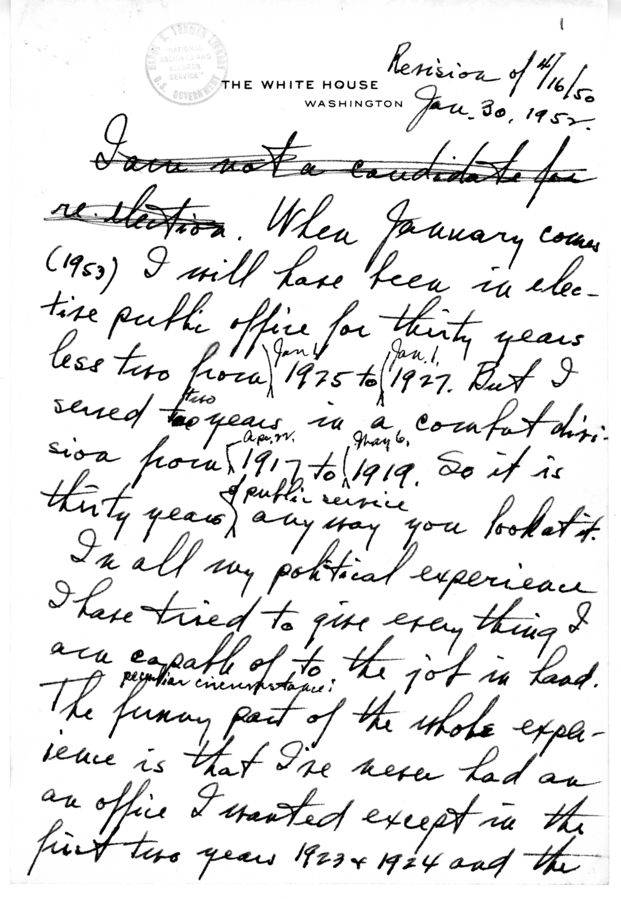 1
HARRY S. TRUMAN LIBRARY
"NATIONAL
ARCHIVES AND
RECORDS
SERVICE"
U.S. GOVERNMENT
THE WHITE HOUSE
WASHINGTON
Revision of 4/16/50
Jan. 30, 1952.
I am not a candidate for
re-election. When January comes
(1953) I will have been in elec-
tive public office for thirty years
Jan. 1, Jan. 1,
less two from 1925 to 1927. But I
two
served two years in a combat divi-
Apr. 22. May 6,
sion from 1917 to 1919. So it is
of public service
thirty years any way you look at it.
In all my political experience
I have tried to give every thing I
am capable of to the job in hand.
peculiar circumstance:
The funny part of the whole exper-
ience is that I've never had an
an office I wanted except in the
first two years 1923 & 1924 and the